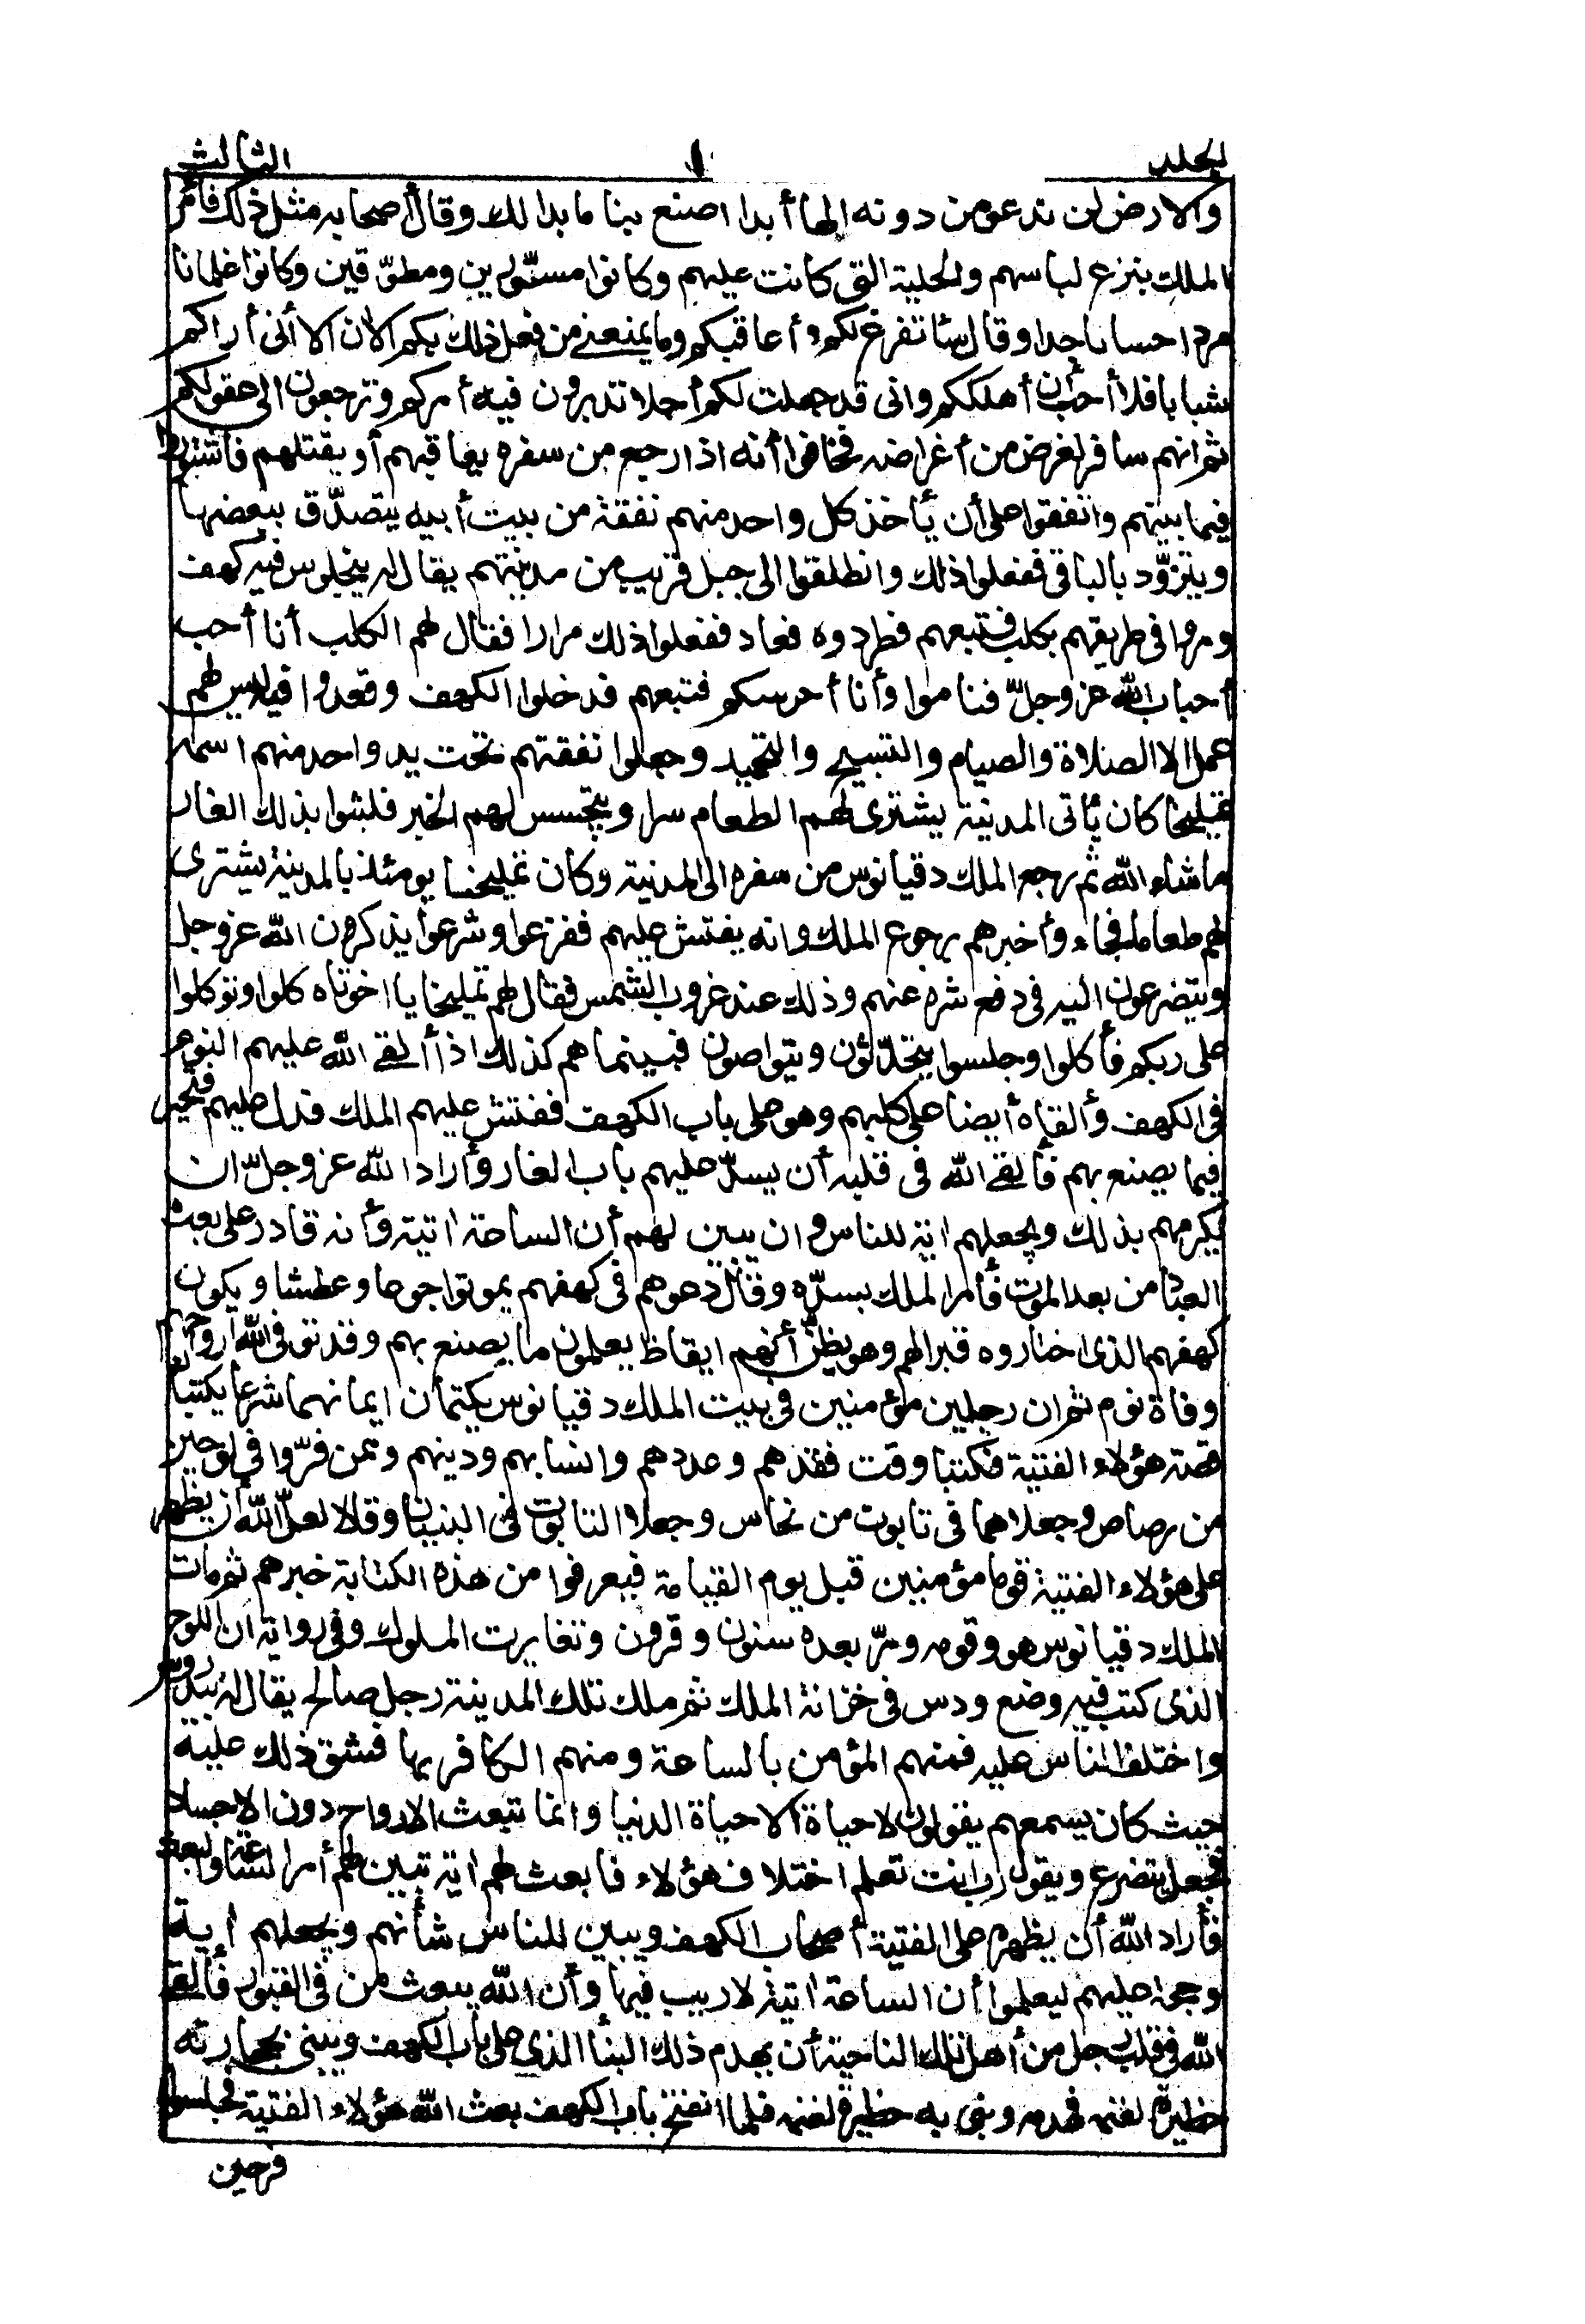 المجلد ١ الثالث
والارض لن ندعو من دونه الها أبدا اصنع بنا ما بدا لك وقال أصحابه مثل ذلك فأمر
الملك بنزع لباسهم والحلية التى كانت عليهم وكانوا مسوّرين ومطوّقين وكانوا غلمانا
مردا حسانا جدا وقال سأتفرغ لكم وأعاقبكم وما يمنعنى من فعل ذلك بكم الان الا أنى أراكم
شبابا فلا أحب أن أهلككم وانى قد جعلت لكم أجلا تدبرون فيه أمركم وترجعون الى عقولكم
ثم انهم سافر لغرض من أغراضه فخافوا أنه اذا رجع من سفره يعاقبهم أو يقتلهم فاشتوروا
فيما بينهم واتفقوا على أن يأخذ كل واحد منهم نفقة من بيت أبيه يتصدّق ببعضها
ويتزوّد بالباقى ففعلوا ذلك وانطلقوا الى جبل قريب من مدينتهم يقال له ينجلوس فيه كهف
ومروا فى طريقهم بكلب فتبعهم فطردوه فعاد ففعلوا ذلك مرارا فقال لهم الكلب أنا أحب
أحباب الله عز وجلّ فناموا وأنا أحرسكم فتبعهم فدخلوا الكهف وقعدوا فيه ليس لهم
عمل الا الصلاة والصيام والتسبيح والتحميد وجعلوا نفقتهم تحت يد واحد منهم اسمه
تمليخا كان يأتى المدينة يشترى لهم الطعام سرا ويتجسس لهم الخبر فلبثوا بذلك الغار
ما شاء الله ثم رجع الملك دقيانوس من سفره الى المدينة وكان تمليخا يومئذ بالمدينة يشترى
لهم طعاما فجاء وأخبرهم برجوع الملك وانه يفتش عليهم ففزعوا وشرعوا يذكرون الله عز وجل
ويتضرعون اليه فى دفع شره عنهم وذلك عند غروب الشمس فقال لهم تمليخا يا اخوتاه كلوا وتوكلوا
على ربكم فأكلوا وجلسوا يتحدّثون ويتواصون فبينما هم كذلك اذ أألقى الله عليهم النوم
فى الكهف وألقاه أيضا على كلبهم وهو على باب الكهف ففتش عليهم الملك فدل عليهم فتحير
فيما يصنع بهم فألقى الله فى قلبه أن يسدّ عليهم باب الغار وأراد الله عز وجلّ ان
يكرمهم بذلك ويجعلهم اية للناس وان يبين لهم أن الساعة اتية وأنه قادر على بعث
العباد من بعد الموت فأمر الملك بسدّه وقال دعوهم فى كهفهم يموتوا جوعا وعطشا ويكون
كهفهم الذى اختاروه قبرا لهم وهو يظنّ أنهم ايقاظ يعلمون ما يصنع بهم وقد توفى الله ارواحهم
وفاة نوم ثم ان رجلين مؤمنين فى بيت الملك دقيانوس يكتمان ايمانهما شرعا يكتبان
قصة هؤلاء الفتية فكتبا وقت فقدهم وعددهم وانسابهم ودينهم وممن فرّوا فى لوحين
من رصاص وجعلاهما فى تابوت من نحاس وجعلا التابوت فى البنيان وقالا لعلّ الله أن يظهر
على هؤلاء الفتية قوما مؤمنين قبل يوم القيامة فيعرفوا من هذه الكتابة خبرهم ثم مات
الملك دقيانوس هو وقومه ومرّ بعده سنون وقرون وتغايرت الملوك وفى رواية ان اللوح
الذى كتب فيه وضع ودس فى خزانة الملك ثم ملك تلك المدينة رجل صالح يقال له بيدروس
واختلف الناس عليه فمنهم المؤمن بالساعة ومنهم الكافر بها فشق ذلك عليه
حيث كان يسمعهم يقولون لا حياة الا حياة الدنيا وانما تبعث الارواح دون الاجساد
فجعل يتضرع ويقول رب انت تعلم اختلاف هؤلاء فابعث لهم اية تبين لهم أمر الساعة والبعث
فأراد الله أن يظهره على الفتية أصحاب الكهف ويبين للناس شأنهم ويجعلهم اية
وحجة عليهم ليعلموا أن الساعة اتية لا ريب فيها وأن الله يبعث من فى القبور فألقى
الله فى قلب رجل من أهل تلك الناحية أن يهدم ذلك البنأ الذى على باب الكهف ويبنى بحجارته
حظيرة لغنمه فهدمه وبنى به حظيرة لغنمه فلما انفتح باب الكهف بعث الله هؤلاء الفتية فجلسوا
فرحين